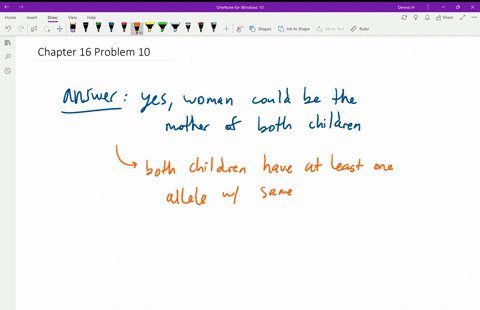 OneNote for Windows 10
Dennis H
File Home Insert Draw View Help
Shapes Ink to Shape Ink to Text Ruler
Chapter 16 Problem 10
answer: yes, woman could be the
mother of both children
both children have at least one
allele w/ same